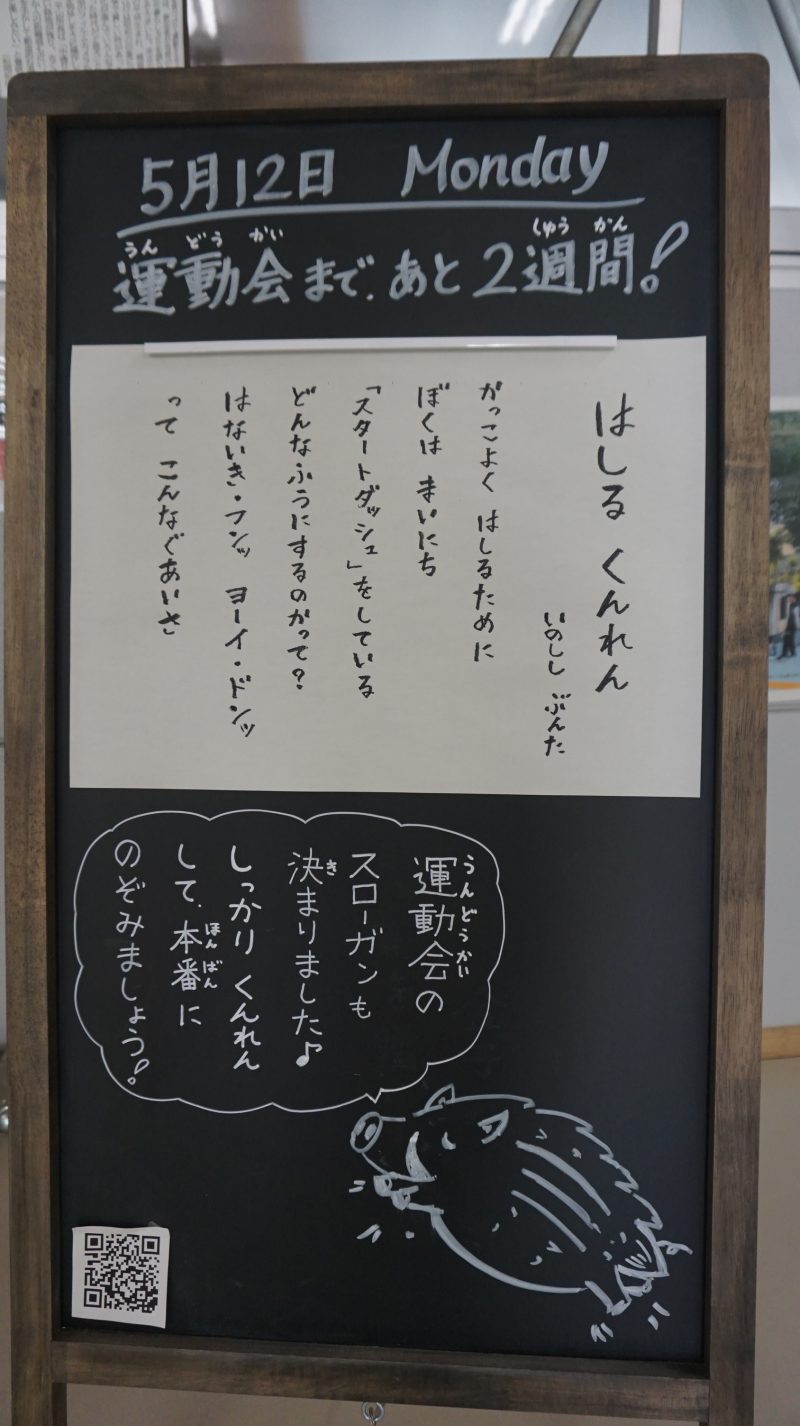 5月12日 Monday
運動会まで、あと2週間!
うん どう かい しゅう かん
はしる くんれん
いのしし ぶんた
かっこよく はしるために
ぼくは まいにち
「スタートダッシュ」をしている
どんなふうにするのかって?
はないき・フンッ ヨーイ・ドンッ
って こんなぐあいさ
運動会の
うんどうかい
スローガンも
決まりました♪
き
しっかり くんれん
して、本番に
ほんばん
のぞみましょう!